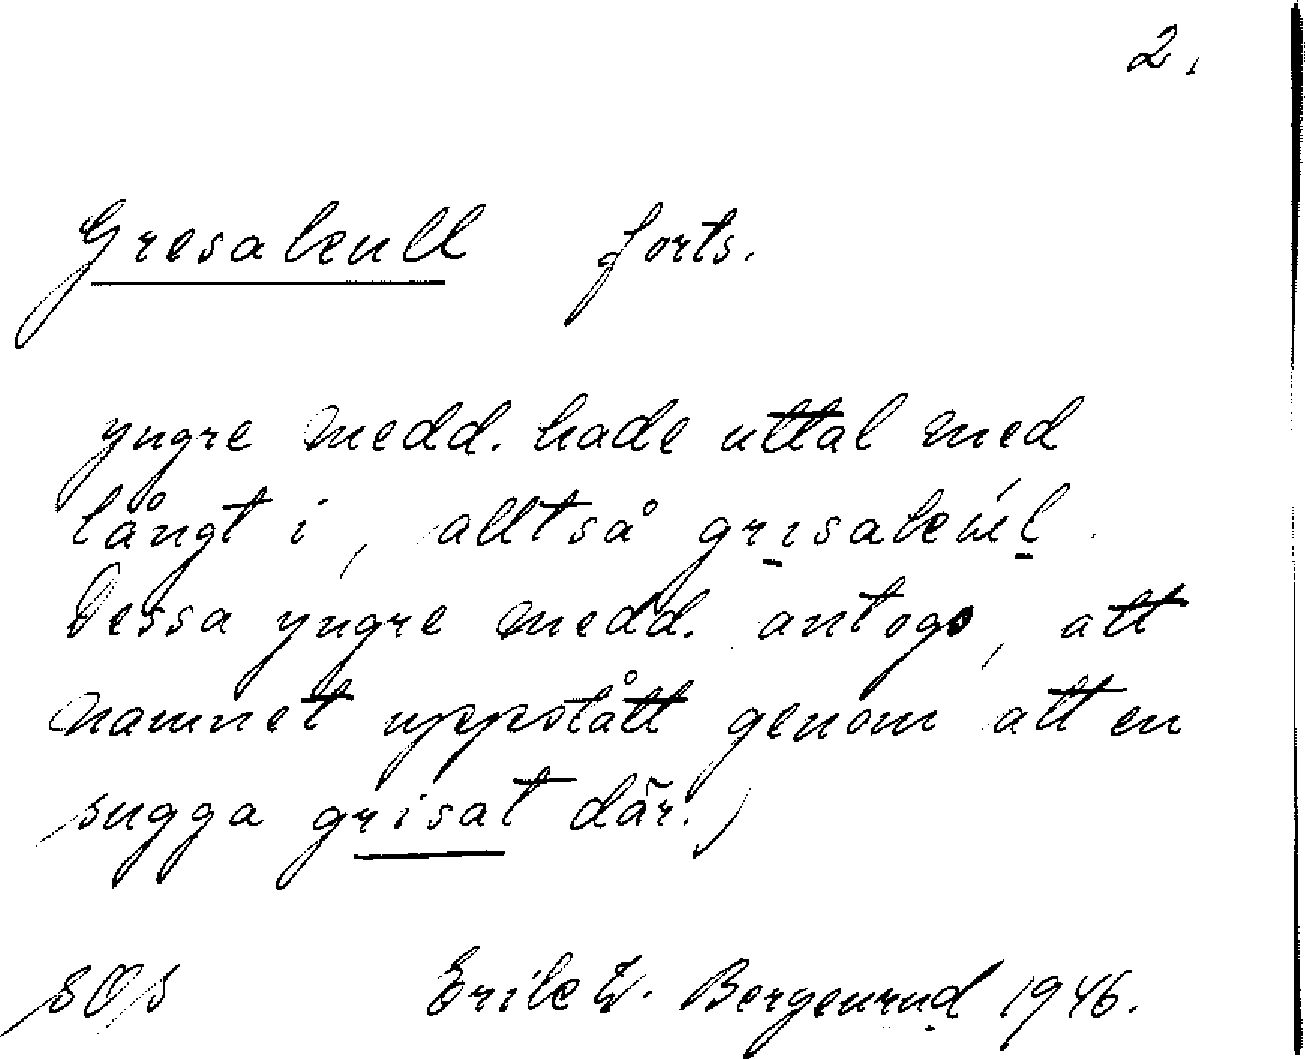 2.
Gresakull forts.
yngre medd. hade uttal med
långt i, alltså grisakúl.
Dessa yngre medd. antogo, att
namnet uppstått genom att en
sugga grisat där.)
SOS Erik W. Bergenrud 1946.